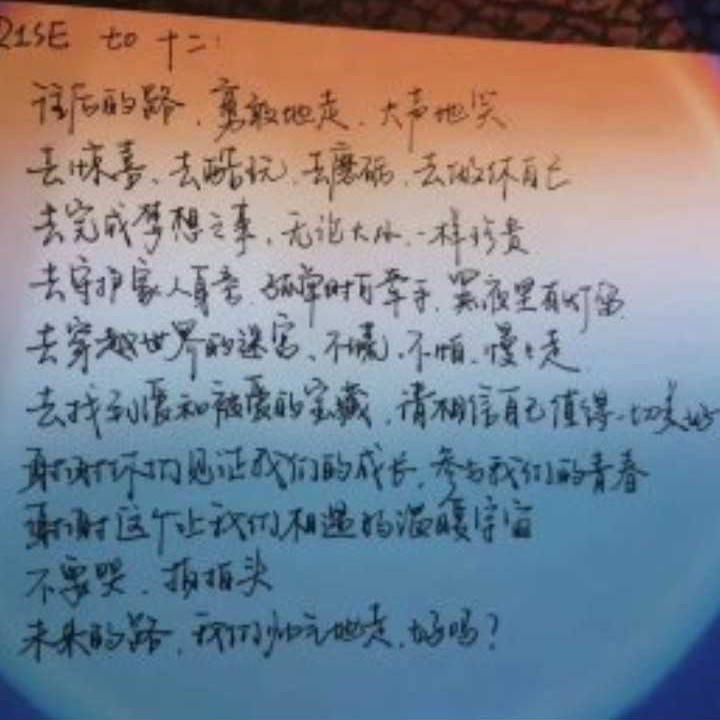 R1SE to 十二:
往后的路、勇敢地走、大声地笑
去惊喜、去酷玩、去磨砺、去做你自己
去完成梦想之事、无论大小、一样珍贵
去守护家人真意 孤单时有牵手、黑夜里有灯留
去穿越世界的迷宫、不慌、不怕、慢慢走
去找到爱和被爱的宝藏、请相信自己值得一切美好
谢谢你们见证我们的成长、参与我们的青春
谢谢这个让我们相遇的温暖宇宙
不要哭、拍拍头
未来的路、我们帅气地走、好吗?